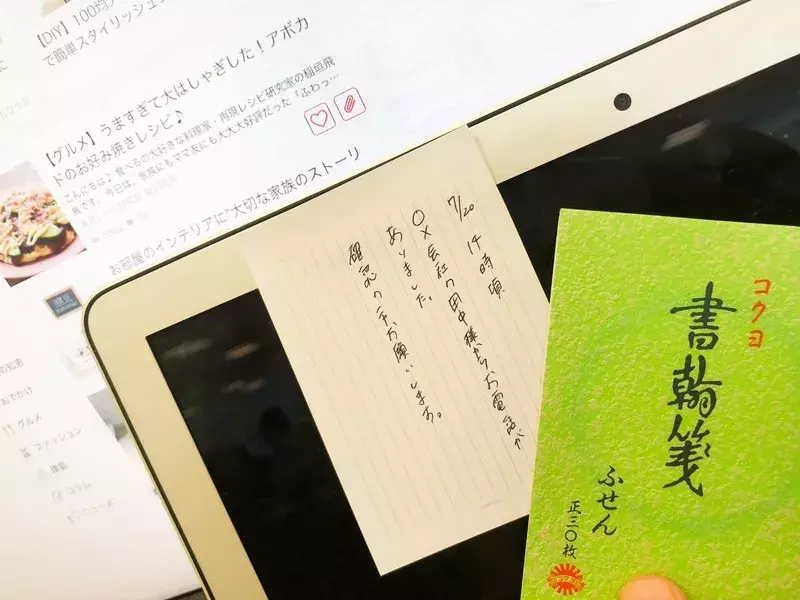 【DIY】100均
で簡単スタイリッシュ
【グルメ】うますぎて大はしゃぎした！アボカ
ドのお好み焼きレシピ♪
こんにちは♪ 食べるの大好きな料理家・再現レシピ研究家の稲垣飛
鳥です。今日は、家族にもママ友にも大大大好評だった「ふわっ…
お部屋のインテリアに"大切な家族のストーリ
の知恵
おでかけ
グルメ
ファッション
コラム
7/20 14時頃
〇×会社の田中様からお電話が
ありました。
確認の予お願いします。
コクヨ
書翰箋
ふせん
正三〇枚